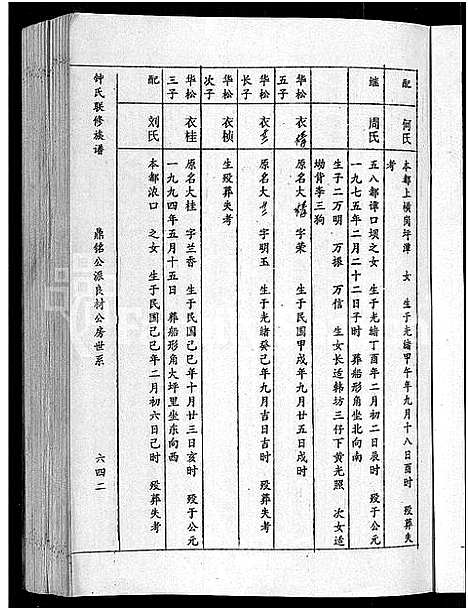 配 何氏 本都上横岗坪潭 女 生于光绪甲午年九月十八日酉时 殁葬失
考
继 周氏 五八都谭口坝之女 生于光绪丁酉年二月初二日辰时 殁于公元
一九七五年二月二十二日子时 葬船形角坐北向南
生子二万明 万振 万信 生女长适韩坊三仔下黄光照 次女适
坳背李三狗
华松五子 衣 原名大 字荣 生于民国甲戌年九月廿五日戌时
华松长子 衣 原名大 字明玉 生于光绪癸己年九月吉日吉时 殁葬失考
华松次子 衣桢 生殁葬失考
华松三子 衣桂 原名大桂 字兰香 生于民国己巳年十月廿三日亥时 殁于公元
一九九四年五月十五日 葬船形角大坪里坐东向西
配 刘氏 本都浪口 之女 生于民国己巳年二月初六日己时 殁葬失考
钟氏联修族谱 鼎铭公派良材公房世系 六四二